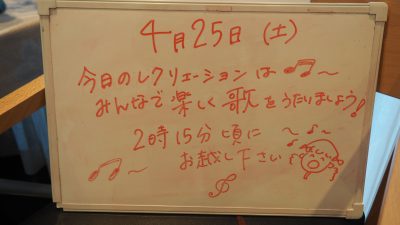 4月25日(土)
今日のレクリエーションは♫~
みんなで楽しく歌をうたいましょう!
2時15分頃に
お越し下さい